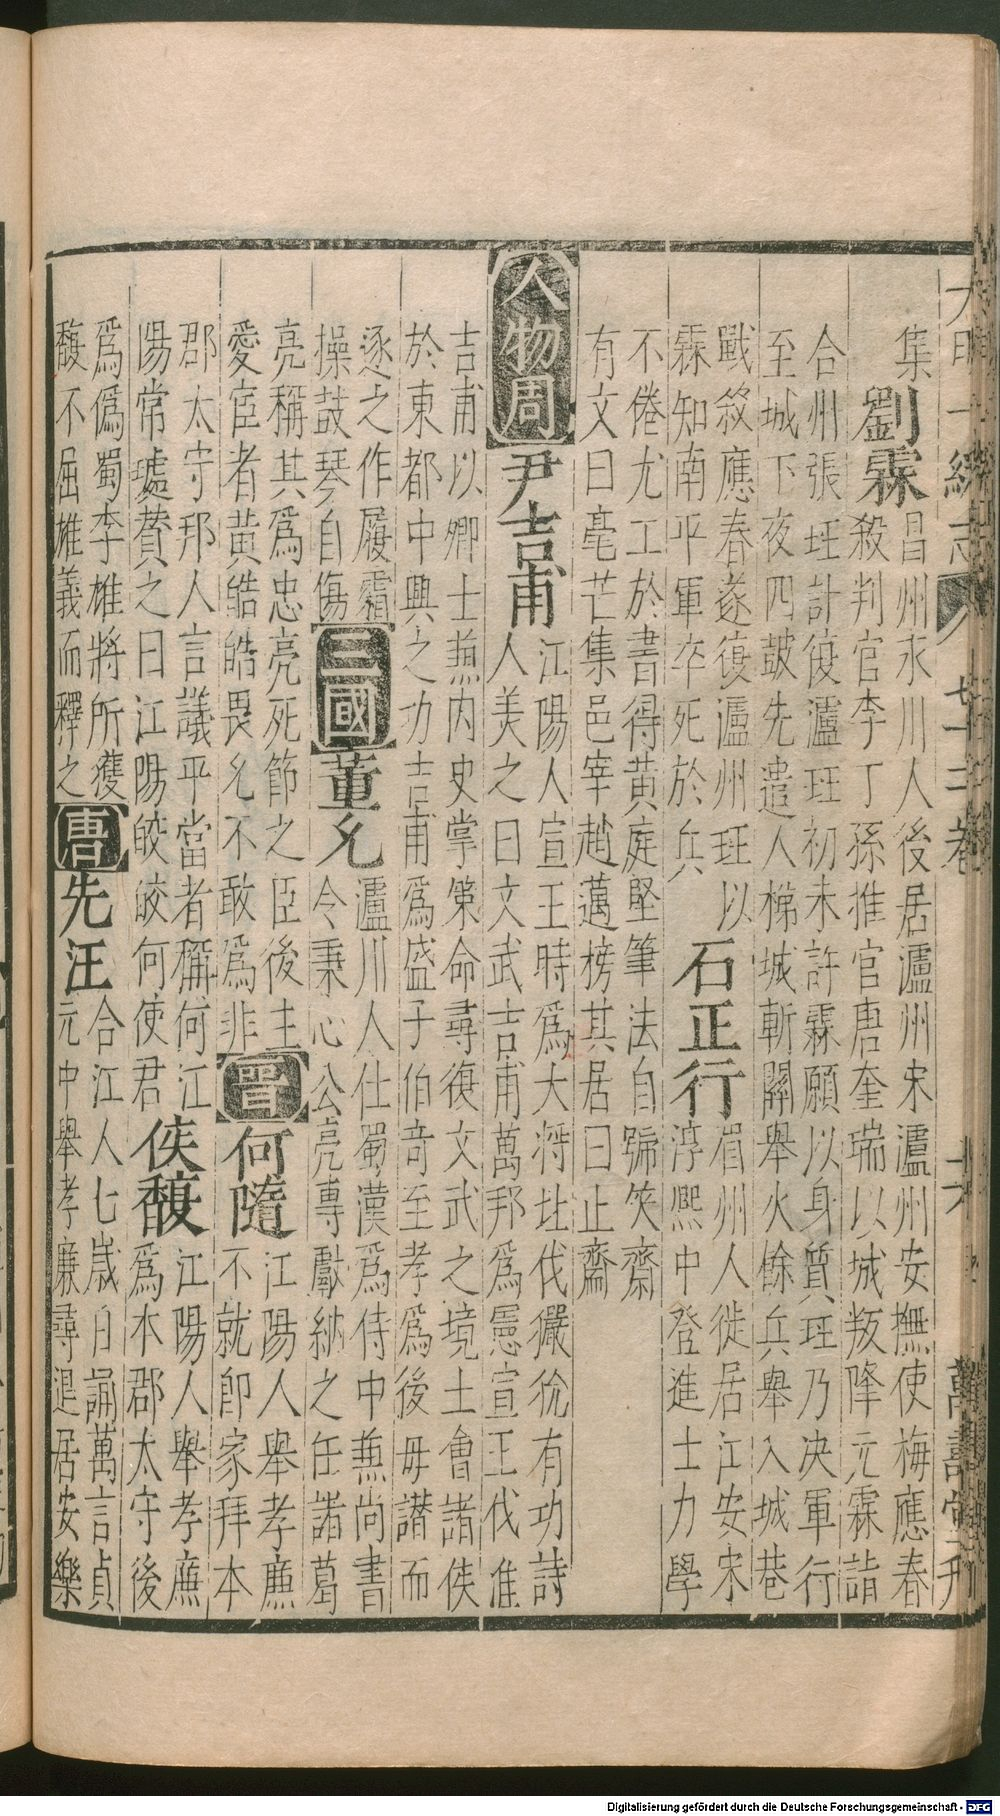 大明一統志 七十二卷 十六 萬壽堂刊
集
劉霖 昌州永川人後居瀘州宋瀘州安撫使梅應春
殺判官李丁孫推官唐奎瑞以城叛降元霖詣
合州張珏計復瀘珏初未許霖願以身質珏乃决軍行
至城下夜四鼓先遣人梯城斬關舉火餘兵舉入城巷
戰敘應春遂復瀘州珏以
霖知南平軍卒死於兵
石正行 眉州人徙居江安宋
淳熙中登進士力學
不倦尤工於書得黄庭堅筆法自號笑齋
有文曰毫芒集邑宰趙邁榜其居曰止齋
人物周 尹吉甫 江陽人宣王時爲大將北伐玁狁有功詩
人美之曰文武吉甫萬邦爲憲宣王伐淮
吉甫以卿士兼内史掌策命尋復文武之境土會諸侯
於東都中興之力吉甫爲盛子伯奇至孝爲後母譖而
逐之作履霜
操鼓琴自傷
三國 董允 瀘川人仕蜀漢爲侍中兼尚書
令秉心公亮專獻納之任諸葛
亮稱其爲忠亮死節之臣後主
愛宦者黄皓皓畏允不敢爲非
晉 何隨 江陽人舉孝廉
不就即家拜本
郡太守邦人言議平當者稱何江
陽常璩贊之曰江陽皎皎何使君
侯馥 江陽人舉孝廉
爲本郡太守後
爲僞蜀李雄將所獲
馥不屈雄義而釋之
唐 先汪 合江人七歲日誦萬言貞
元中舉孝廉尋退居安樂
Digitalisierung gefördert durch die Deutsche Forschungsgemeinschaft - DFG